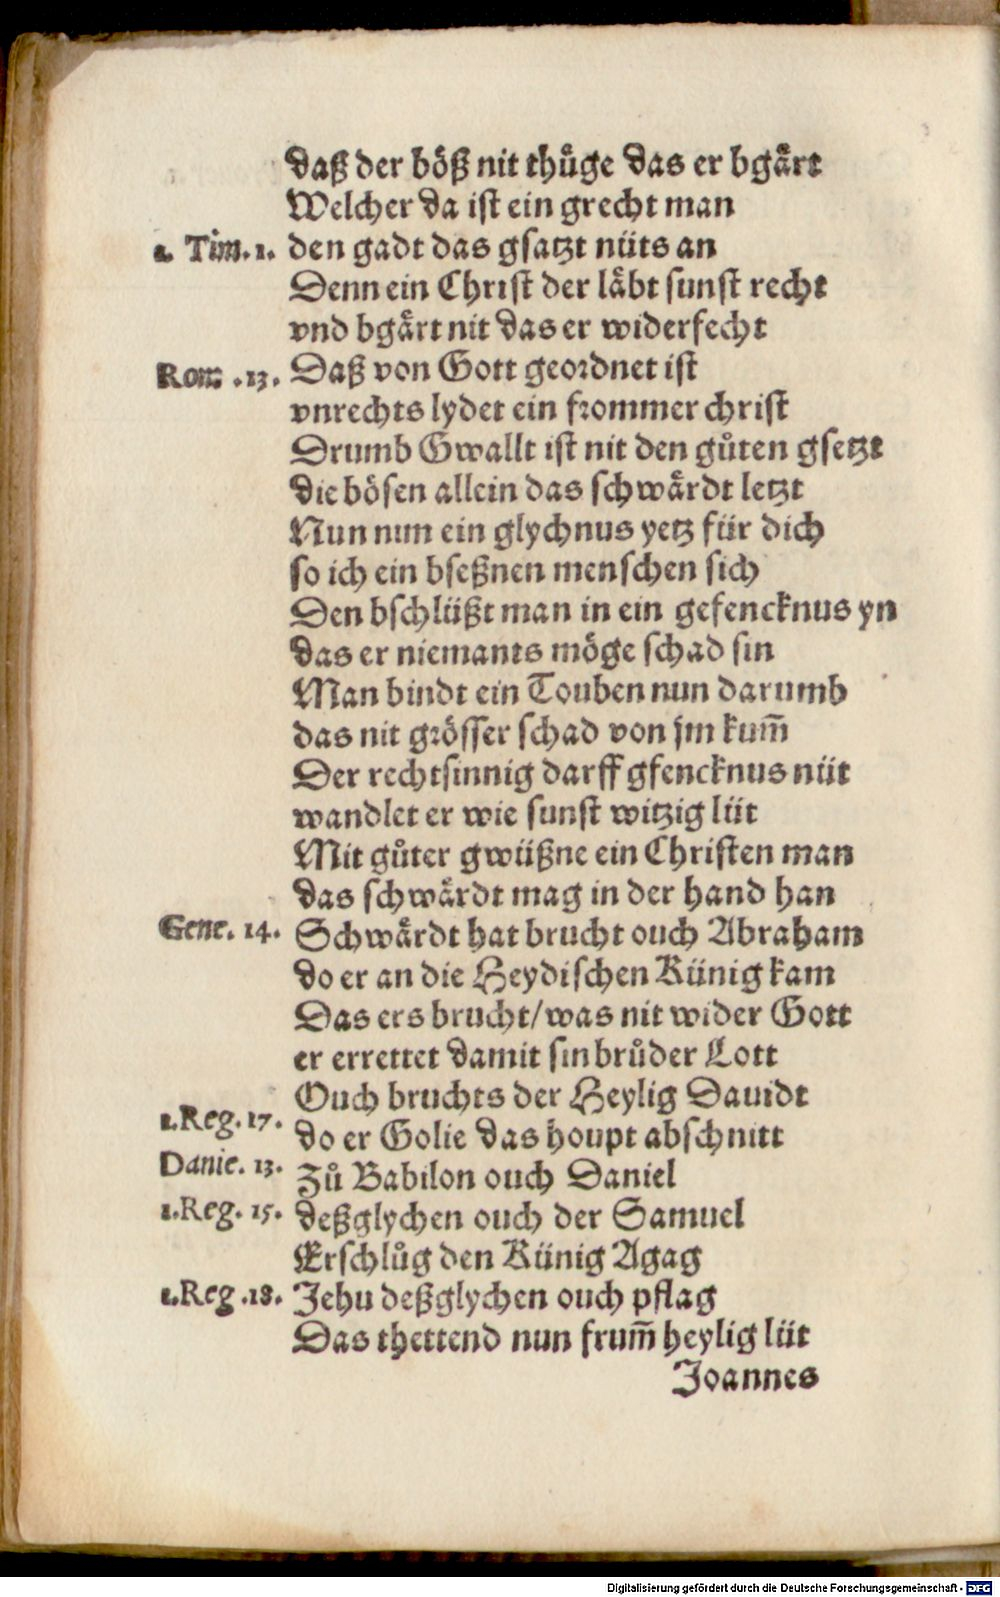 daß der böß nit thuͤge das er bgaͤrt
Welcher da ist ein grecht man
1. Tim. 1. den gadt das gsatzt nüts an
Denn ein Christ der laͤbt sunst recht
vnd bgaͤrt nit das er widerfecht
Rom .13. Daß von Gott geordnet ist
vnrechts lydet ein frommer christ
Drumb Gwallt ist nit den guͦten gsetzt
die bösen allein das schwaͤrdt letzt
Nun nim ein glychnus yetz für dich
so ich ein bseßnen menschen sich
Den bschlüßt man in ein gefencknus yn
das er niemants möge schad sin
Man bindt ein Touben nun darumb
das nit grösser schad von jm kum̄
Der rechtsinnig darff gfencknus nüt
wandlet er wie sunst witzig lüt
Mit guͦter gwüßne ein Christen man
das schwaͤrdt mag in der hand han
Gene. 14. Schwaͤrdt hat brucht ouch Abraham
do er an die Heydischen Künig kam
Das ers brucht/was nit wider Gott
er errettet damit sin bruͦder Lott
Ouch bruchts der Heylig Dauidt
1.Reg. 17. do er Golie das houpt abschnitt
Danie. 13. Zuͦ Babilon ouch Daniel
1.Reg. 15. deßglychen ouch der Samuel
Erschluͦg den Künig Agag
1.Reg .18. Jehu deßglychen ouch pflag
Das thettend nun frum̄ heylig lüt
Joannes
Digitalisierung gefördert durch die Deutsche Forschungsgemeinschaft - DFG